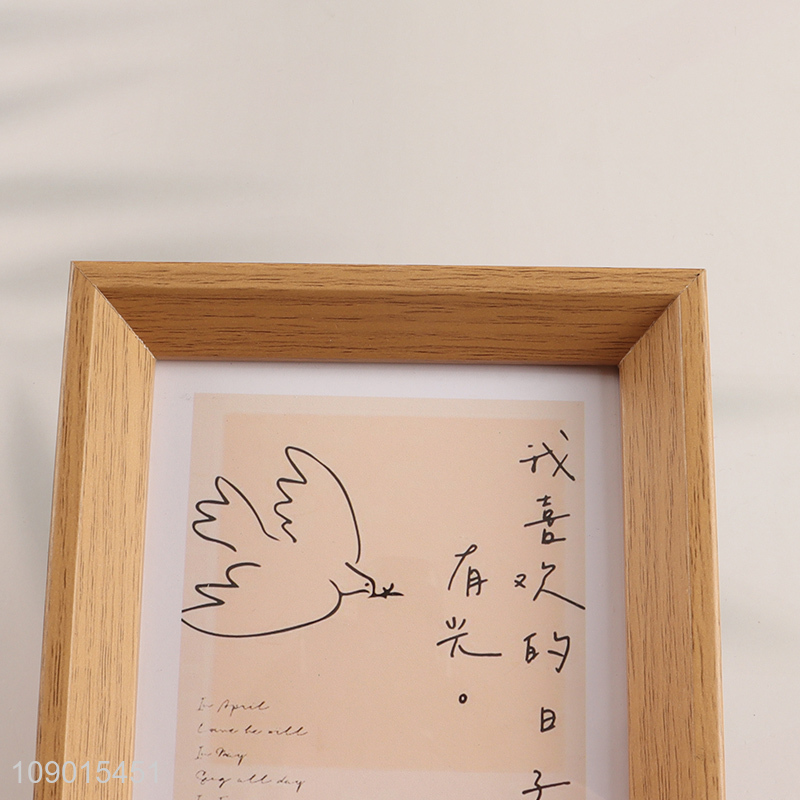 我喜欢的日子
有光。
In April
Come he will
In May
Sing all day
109015451